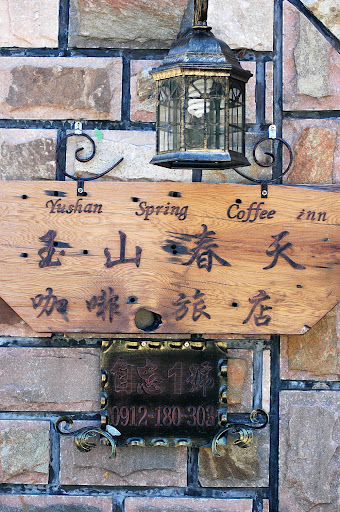 Yushan Spring Coffee inn
玉山春天
咖啡旅店
自忠1號
0912-180-303